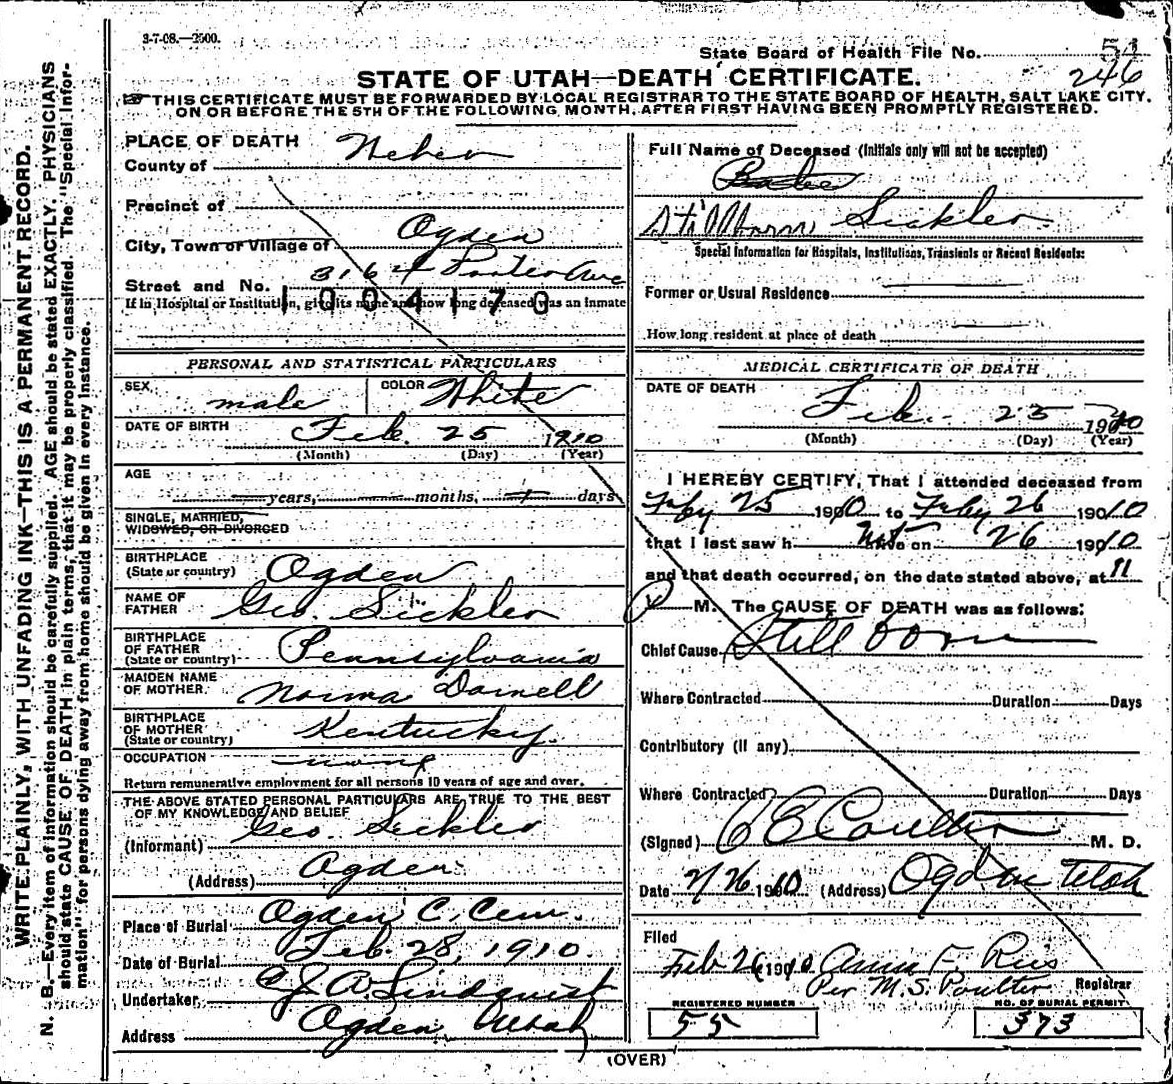 3-7-08.—2500.
State Board of Health File No. 51
246
STATE OF UTAH—DEATH CERTIFICATE.
THIS CERTIFICATE MUST BE FORWARDED BY LOCAL REGISTRAR TO THE STATE BOARD OF HEALTH, SALT LAKE CITY,
ON OR BEFORE THE 5TH OF THE FOLLOWING MONTH, AFTER FIRST HAVING BEEN PROMPTLY REGISTERED.
WRITE PLAINLY, WITH UNFADING INK—THIS IS A PERMANENT RECORD.
N. B.—Every item of information should be carefully supplied. AGE should be stated EXACTLY. PHYSICIANS
should state CAUSE OF DEATH in plain terms, that it may be properly classified. The "Special Infor-
mation" for persons dying away from home should be given in every instance.
PLACE OF DEATH
County of Weber
Precinct of
City, Town or Village of Ogden
Street and No. 3164 Porter Ave
If in Hospital or Institution, give its name and how long deceased was an inmate
1004170
PERSONAL AND STATISTICAL PARTICULARS
SEX male COLOR White
DATE OF BIRTH Feb. 25 1910
(Month) (Day) (Year)
AGE
years, months, days
SINGLE, MARRIED,
WIDOWED, OR DIVORCED
BIRTHPLACE
(State or country) Ogden
NAME OF
FATHER Geo. Sickler
BIRTHPLACE
OF FATHER
(State or country) Pennsylvania
MAIDEN NAME
OF MOTHER Norma Darnell
BIRTHPLACE
OF MOTHER
(State or country) Kentucky.
OCCUPATION none
Return remunerative employment for all persons 10 years of age and over.
THE ABOVE STATED PERSONAL PARTICULARS ARE TRUE TO THE BEST
OF MY KNOWLEDGE AND BELIEF
(Informant) Geo. Sickler
(Address) Ogden
Place of Burial Ogden C. Cem.
Date of Burial Feb. 28, 1910.
Undertaker C. J. A. Lindquist
Address Ogden Utah
Full Name of Deceased (Initials only will not be accepted)
Stillborn Sickler
Special Information for Hospitals, Institutions, Transients or Recent Residents:
Former or Usual Residence
How long resident at place of death
MEDICAL CERTIFICATE OF DEATH
DATE OF DEATH
Feb. 25 1910
(Month) (Day) (Year)
I HEREBY CERTIFY, That I attended deceased from
Feby 25 1910 to Feby 26 1910
that I last saw h Not alive on 26 1910
and that death occurred, on the date stated above, at 11
M. The CAUSE OF DEATH was as follows:
Chief Cause Still born
Where Contracted Duration Days
Contributory (if any)
Where Contracted Duration Days
(Signed) C E Coulter M. D.
Date 2/26 1910 (Address) Ogden Utah
Filed
Feb 26 1910 Anna F. Ries
Per M.S. Poulter Registrar
REGISTERED NUMBER
55
NO. OF BURIAL PERMIT
373
(OVER)